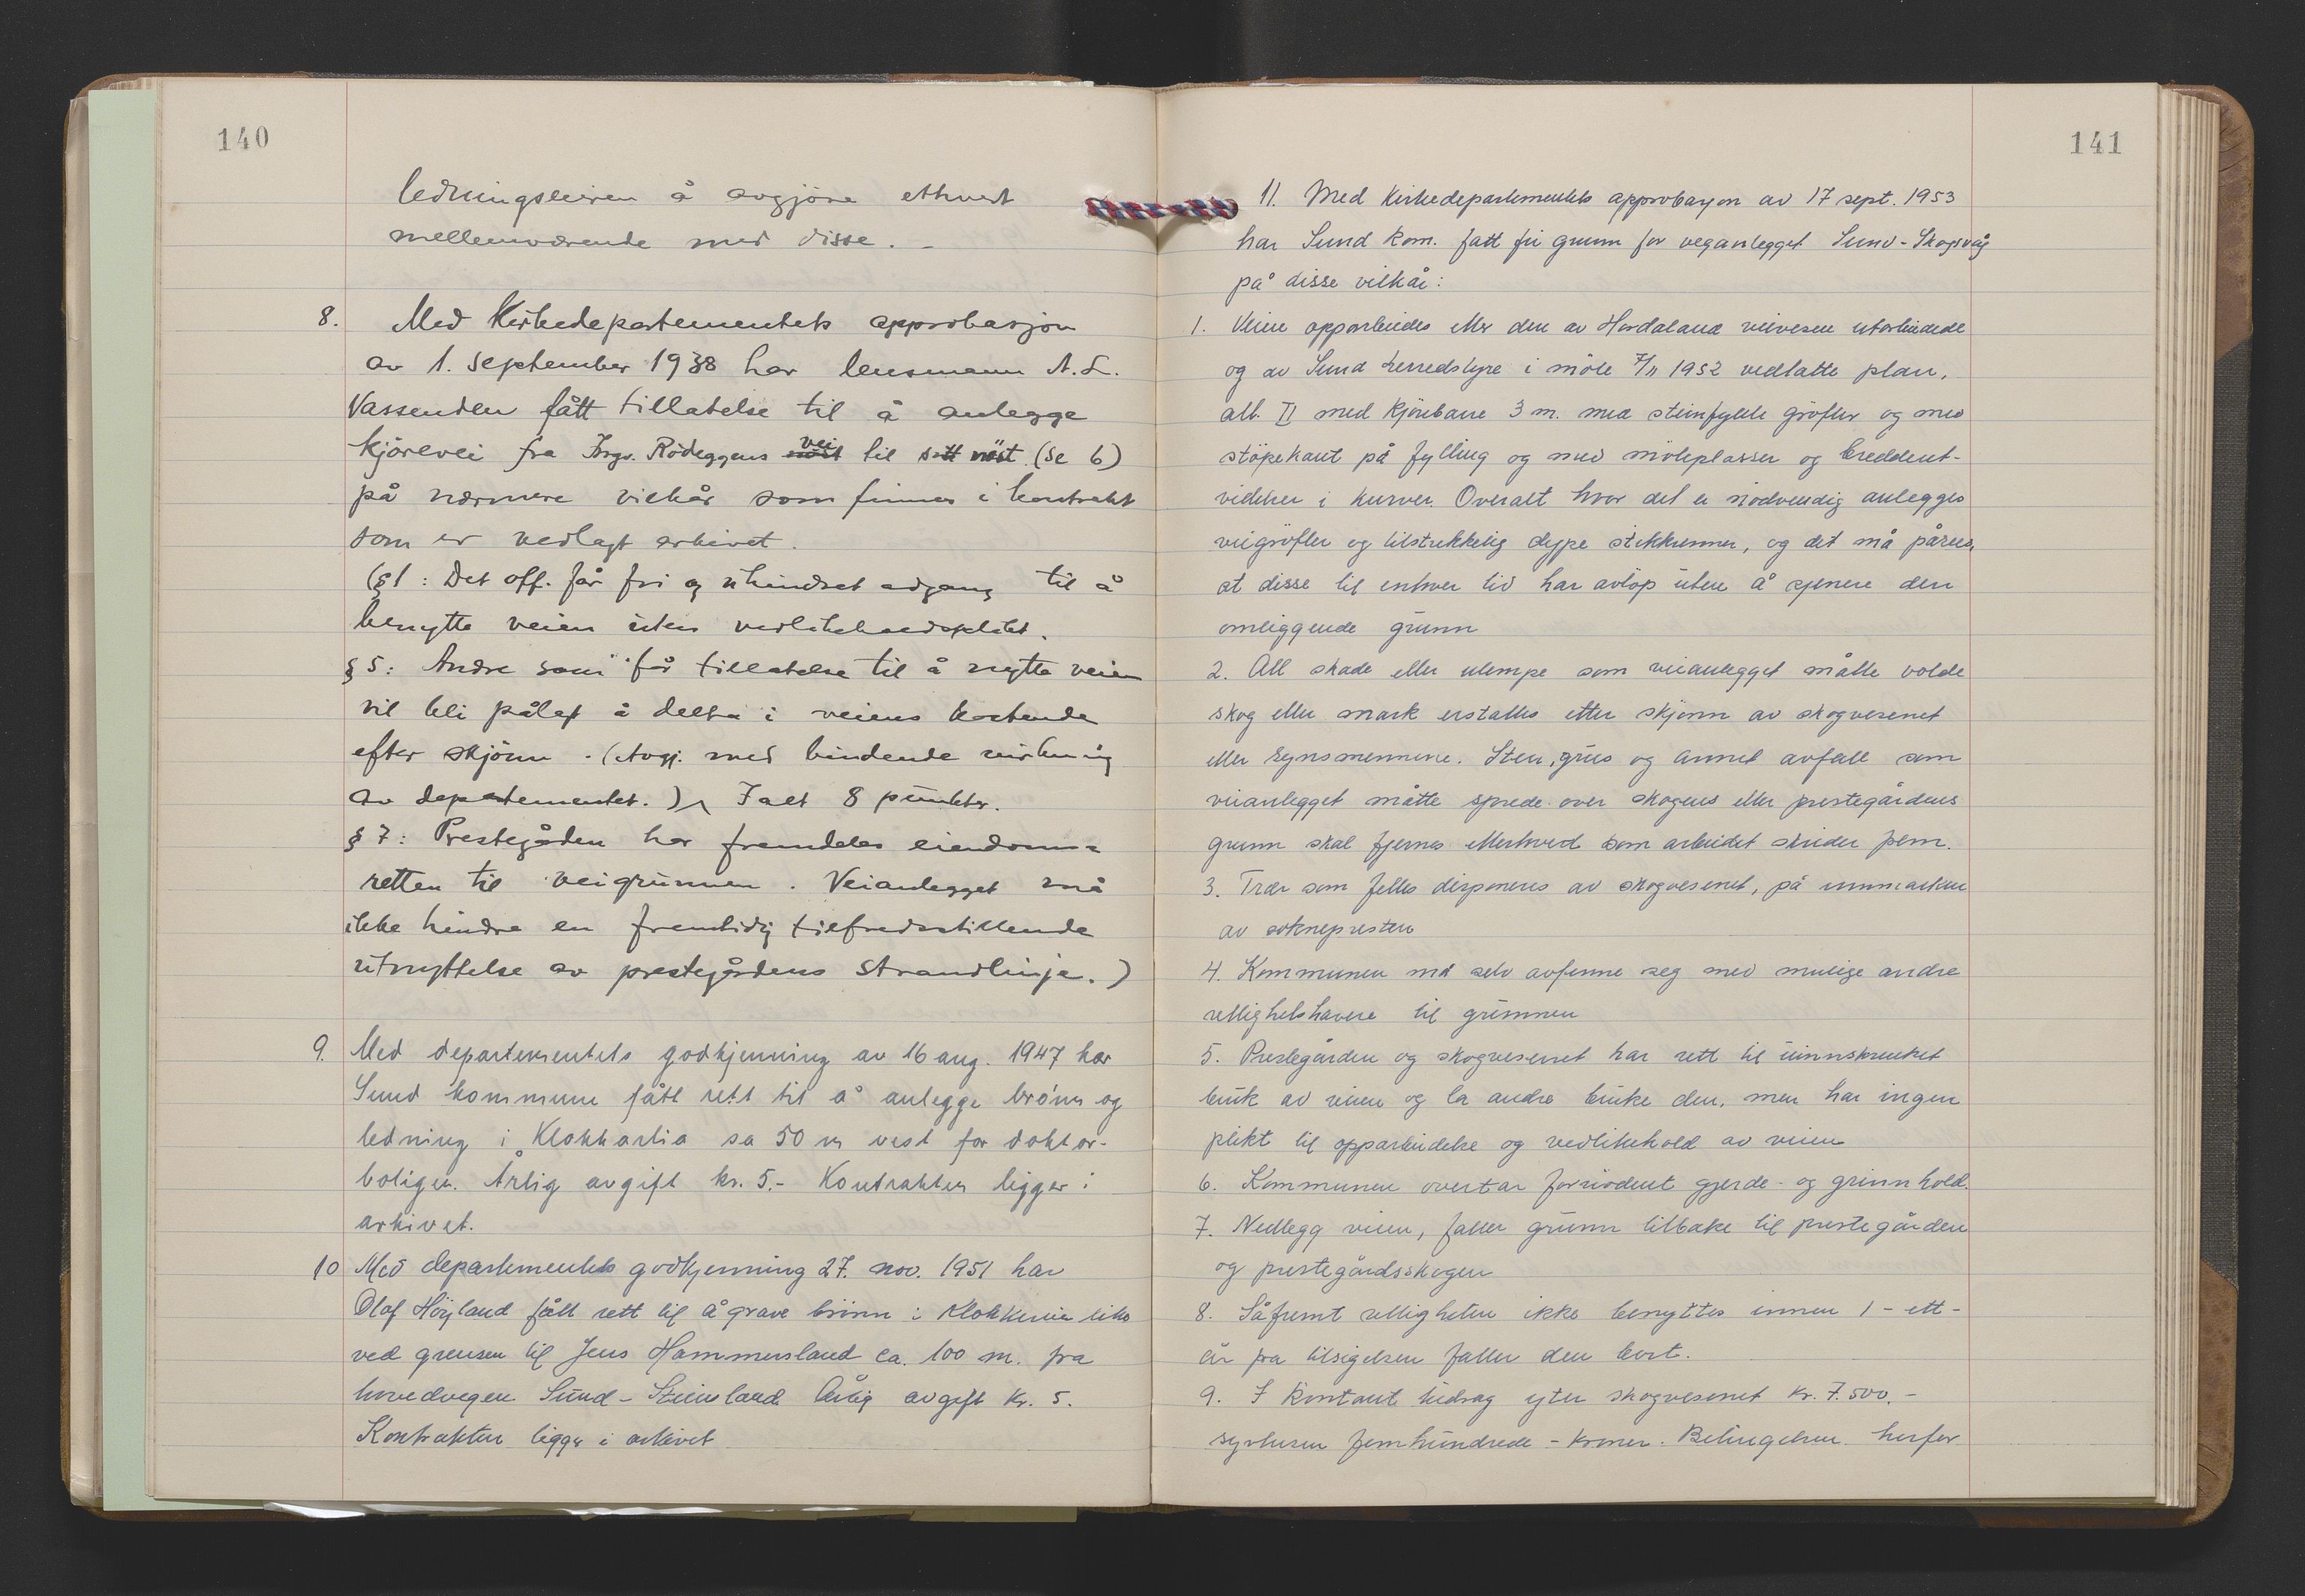 140
ledningseieren å avgjöre ethvert
mellemværende med disse. -
8. Med Kirkedepartementets approbasjon
av 1. september 1938 har lensmann A. L.
Vassenden fått tillatelse til å anlegge
kjörevei fra Ingv. Rödeggens vei til nöst (se 6)
på nærmere vilkår som finnes i kontrakt
som er vedlagt arkivet.
(§1: Det off. får fri og uhindret adgang til å
benytte veien uten vedlikeholdsplikt.
§5: Andre som får tillatelse til å nytte veien
vil bli pålagt å delta i veiens kostende
efter skjönn. (Avgj. med bindende virkning
av departementet.) I alt 8 punkter.
§7: Prestegården har fremdeles eiendoms-
retten til veigrunnen. Veianlegget må
ikke hindre en fremtidig tilfredsstillende
utnyttelse av prestegårdens strandlinje.)
9. Med departementets godkjenning av 16 aug. 1947 har
Sund kommune fått rett til å anlegge brönn og
ledning i Klokkarlia ca 50 m vest for doktor-
boligen. Årlig avgift kr. 5.- Kontrakten ligger i
arkivet.
10 Med departementets godkjenning 27. nov. 1951 har
Olaf Höyland fått rett til å grave brönn i
ved grensen til Jens Hammersland ca. 100 m. fra
hovedvegen Sund - Steinsland. Årlig avgift kr. 5.
Kontrakten ligger i arkivet
141
11. Med Kirkedepartementets approbasjon av 17 sept. 1953
har Sund kom. fått fri grunn for veganlegget Sund - Skogsvåg
på disse vilkår:
1. Veien opparbeides etter den av Hordaland veivesen utarbeidede
og av Sund herredstyre i möte 7/11 1952 vedtatte plan,
alt. II med kjörebane 3 m. med steinfylte gröfter og med
stöpekant på fylling og med möteplasser og breddeut-
videlser i kurver. Overalt hvor det er nödvendig anlegges
veigröfter og tilstrekkelig dype stikkrenner, og det må påsees,
at disse til enhver tid har avlöp uten å sjenere den
omliggende grunn
2. All skade eller ulempe som veianlegget måtte volde
skog eller mark erstattes etter skjönn av skogvesenet
eller synsmennene. Sten, grus og annet avfall som
veianlegget måtte sprede over skogens eller prestegårdens
grunn skal fjernes etterhvert som arbeidet skrider frem.
3. Trær som felles disponeres av skogvesenet, på innmarken
av sokneprestren
4. Kommunen må selv avfinne seg med mulige andre
rettighetshavere til grunnen
5. Prestegården og skogvesenet har rett til uinnskrenket
bruk av veien og la andre bruke den, men har ingen
plikt til opparbeidelse og vedlikehold av veien
6. Kommunen overtar fornödent gjerde- og grinnhold.
7. Nedlegg veien, faller grunn tilbake til prestegården
og prestegårdsskogen
8. Såfremt rettigheten ikke benyttes innen 1 - ett -
år fra tilsigelsen faller den bort.
9. I kontant bidrag yter skogvesenet kr. 7.500.-
syvtusen femhundrede - kroner. Betingelsen herfor